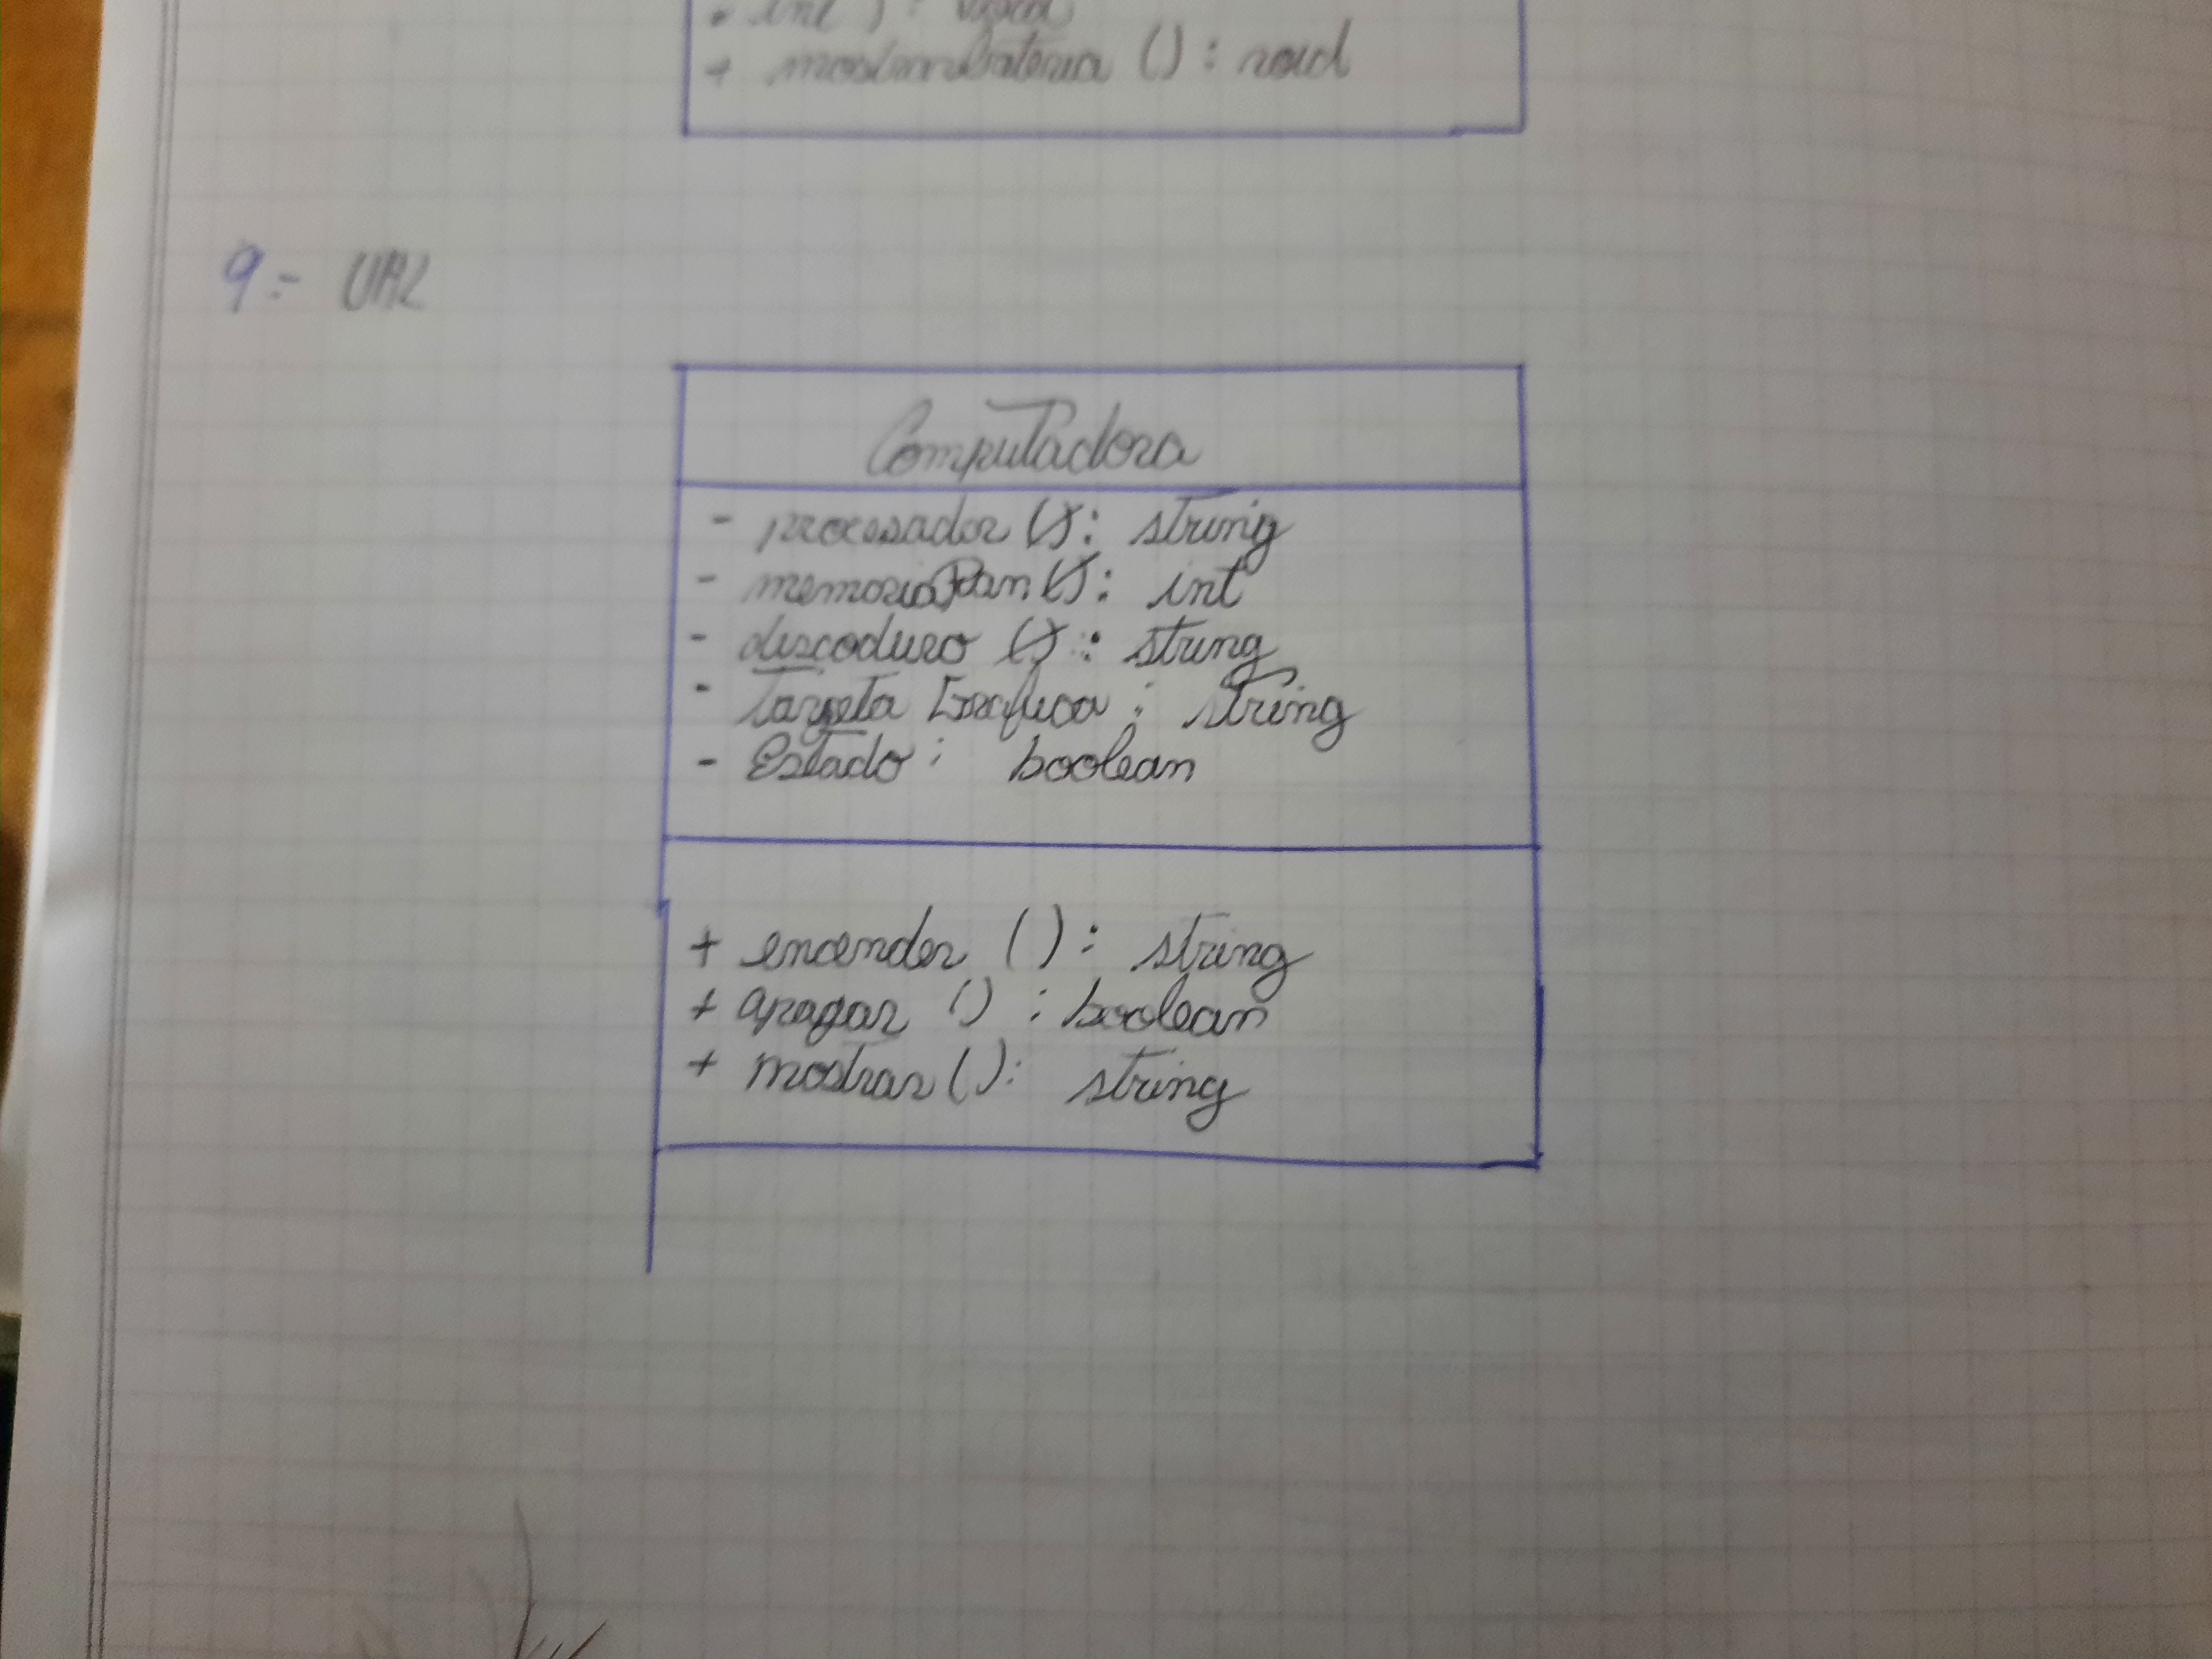 + mostrarbateria () : void
9.- UML
Computadora
- procesador (): string
- memoriaRam (): int
- discoduro () : string
- tarjeta Grafica : string
- Estado : boolean
+ encender () : string
+ apagar () : boolean
+ mostrar () : string